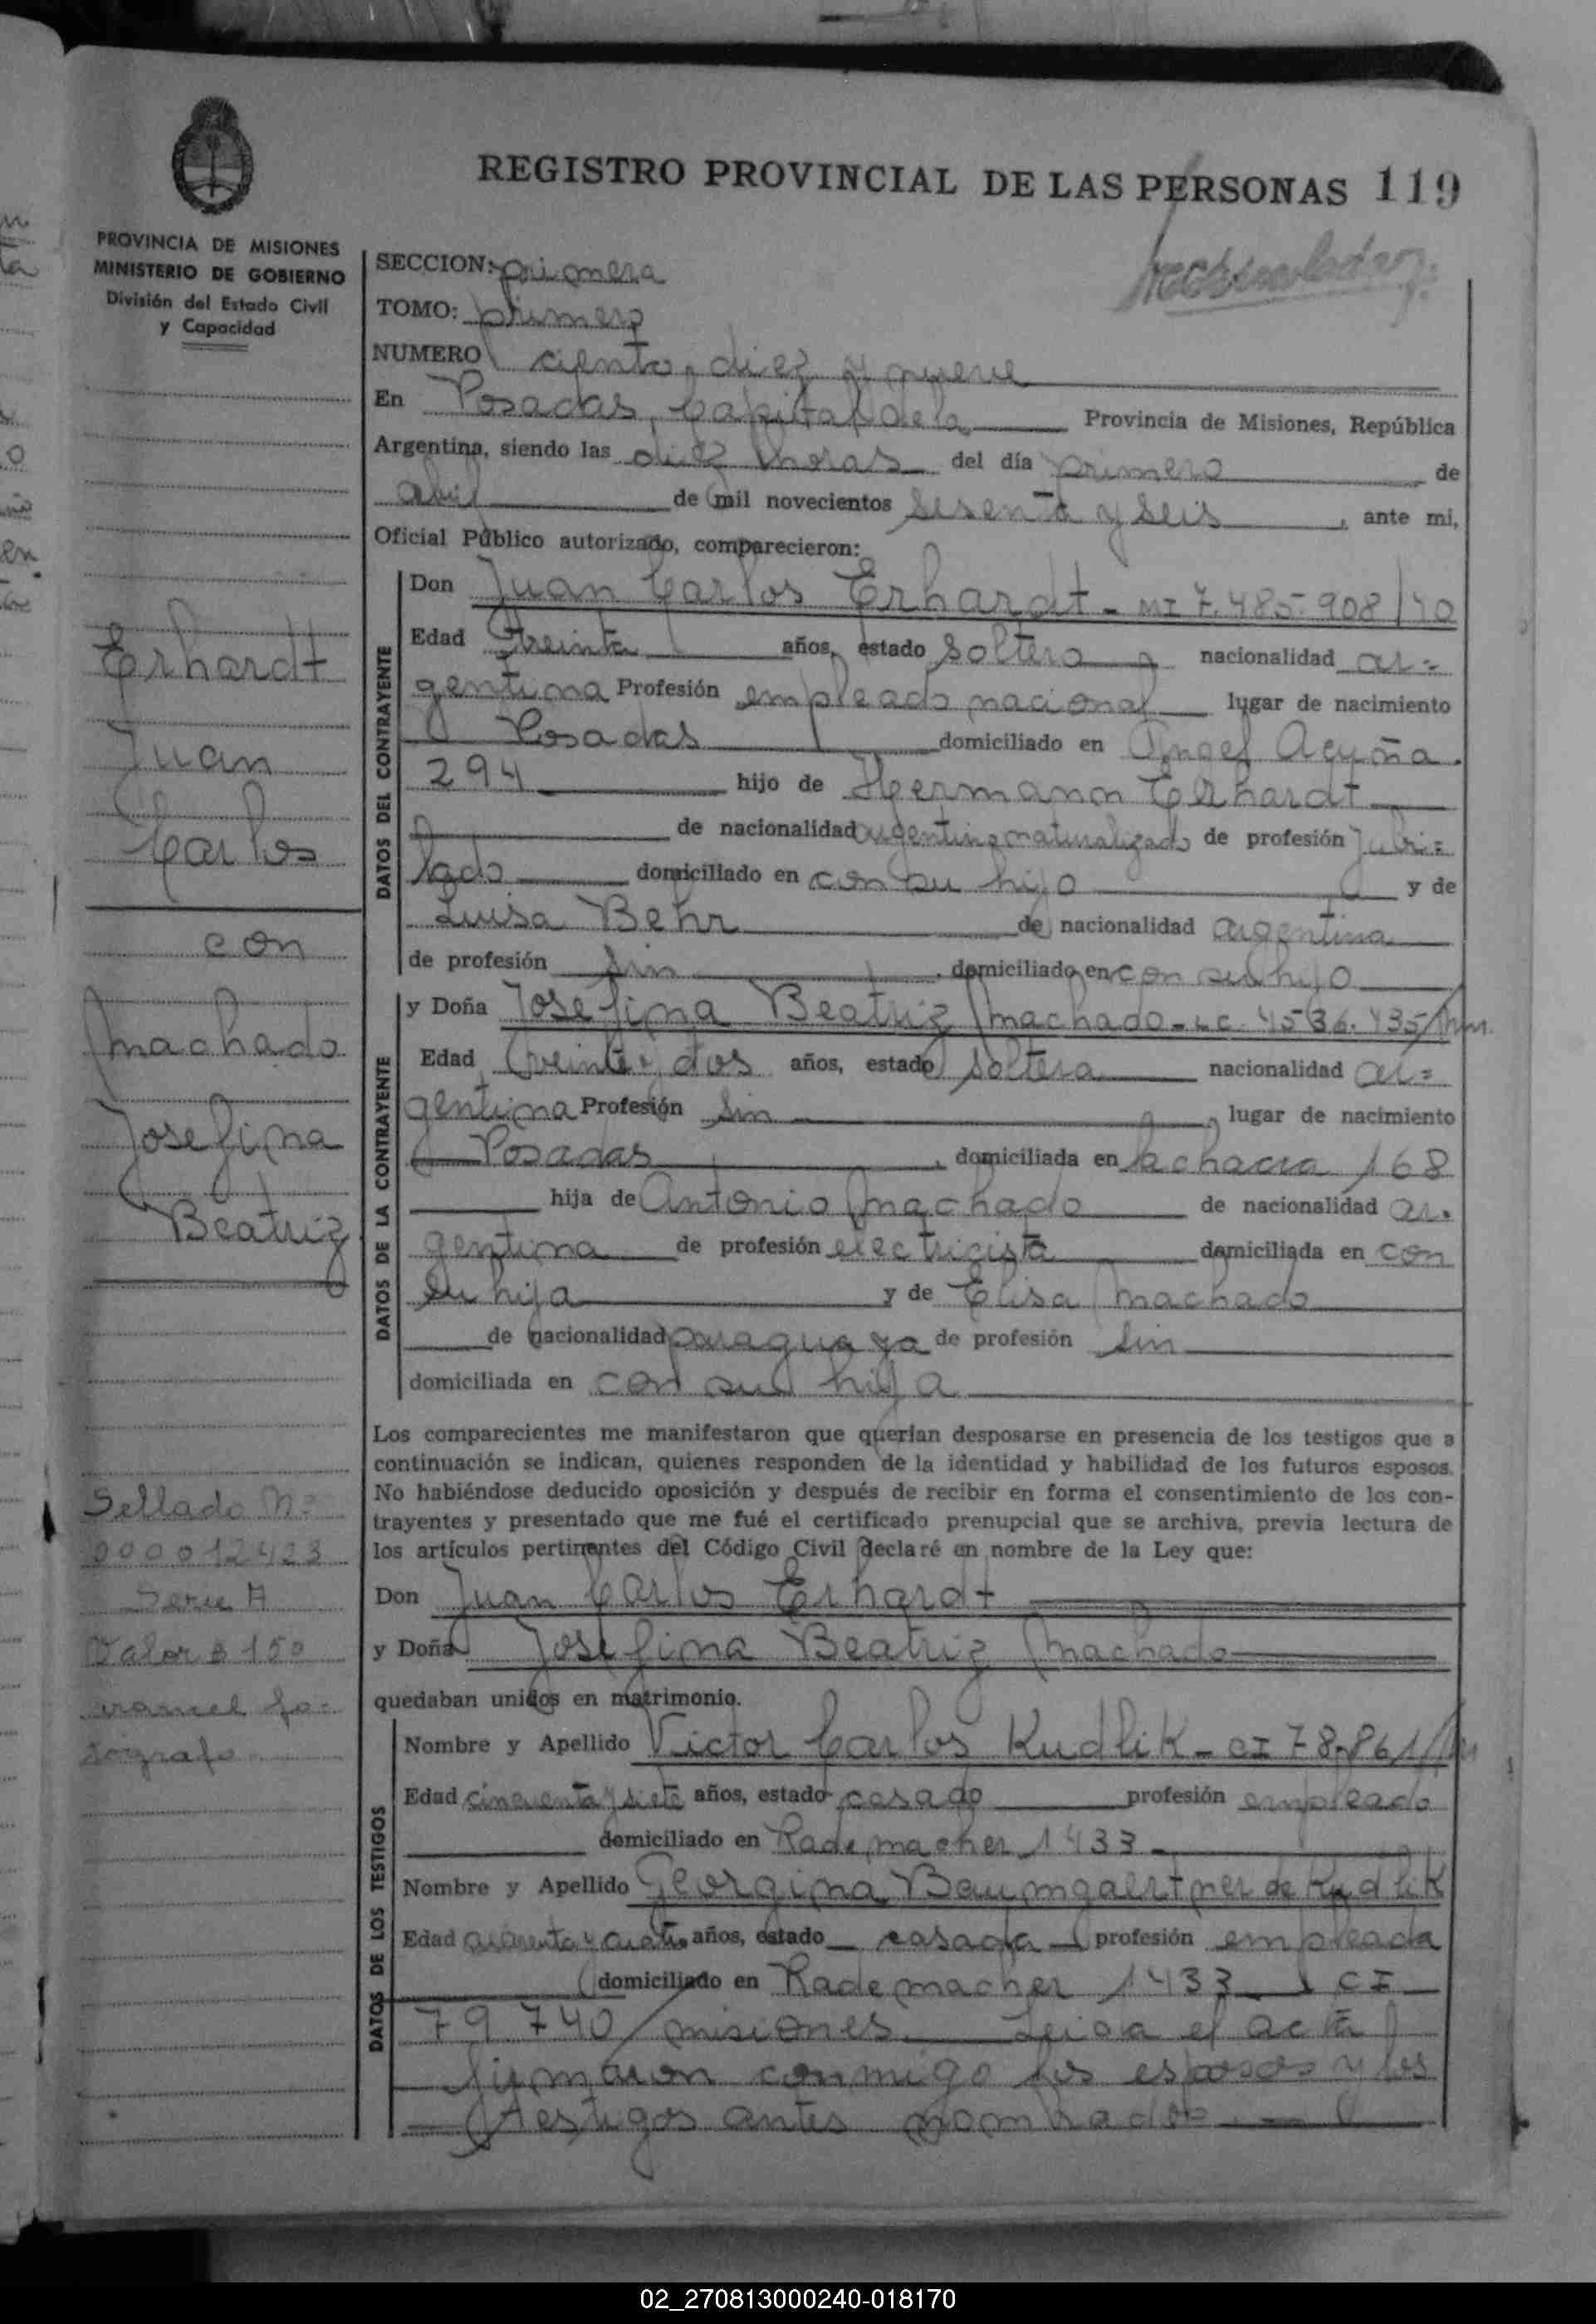 REGISTRO PROVINCIAL DE LAS PERSONAS 119
PROVINCIA DE MISIONES
MINISTERIO DE GOBIERNO
División del Estado Civil
y Capacidad
Erhardt
Juan
Carlos
con
Machado
Josefina
Beatriz
Sellado Nº
000012423
Serie A
Valor $ 150
SECCION: primera
TOMO: primero
NUMERO ciento diez y nueve
En Posadas, Capital de la Provincia de Misiones, República
Argentina, siendo las diez horas del día primero de
abril de mil novecientos sesenta y seis, ante mi,
Oficial Público autorizado, comparecieron:
DATOS DEL CONTRAYENTE
Don Juan Carlos Erhardt - MI 7.485.908/40
Edad treinta años, estado soltero, nacionalidad ar=
gentina Profesión empleado nacional lugar de nacimiento
Posadas domiciliado en Acuña
294 hijo de Hermann Erhardt
de nacionalidad argentino naturalizado de profesión Jubi=
lado domiciliado en con su hijo y de
Luisa Behr de nacionalidad argentina
de profesión sin, domiciliado en con su hijo
DATOS DE LA CONTRAYENTE
y Doña Josefina Beatriz Machado - LC. 4536.435/
Edad veinte y dos años, estado soltera nacionalidad ar=
gentina Profesión sin, lugar de nacimiento
Posadas, domiciliada en La chacra 168
hija de Antonio Machado de nacionalidad ar.
gentina de profesión electricista domiciliada en con
su hija y de Elisa Machado
de nacionalidad paraguaya de profesión sin
domiciliada en con su hija
Los comparecientes me manifestaron que querían desposarse en presencia de los testigos que a
continuación se indican, quienes responden de la identidad y habilidad de los futuros esposos.
No habiéndose deducido oposición y después de recibir en forma el consentimiento de los con-
trayentes y presentado que me fué el certificado prenupcial que se archiva, previa lectura de
los artículos pertinentes del Código Civil declaré en nombre de la Ley que:
Don Juan Carlos Erhardt
y Doña Josefina Beatriz Machado
quedaban unidos en matrimonio.
DATOS DE LOS TESTIGOS
Nombre y Apellido Victor Carlos Kudlik - CI 78.861/
Edad cincuenta y siete años, estado casado profesión empleado
domiciliado en Rademacher 1433
Nombre y Apellido Georgina Baumgaertner de Kudlik
Edad cuarenta y cuatro años, estado casada profesión empleada
domiciliado en Rademacher 1433 CI
79740/misiones. Leida el acta
firmaron conmigo los esposos y los
testigos antes nombrados
02_270813000240-018170